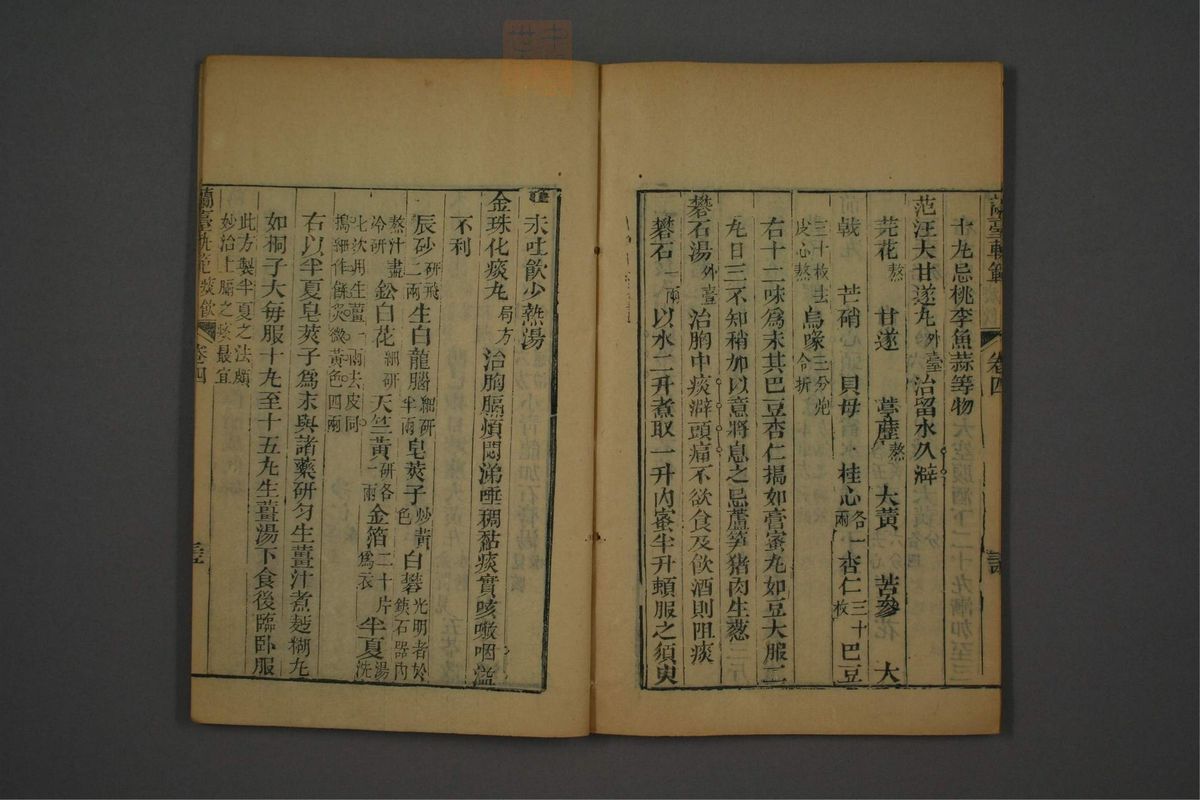 蘭臺軌範
卷四
十丸忌桃李魚蒜等物
范汪大甘遂丸外臺治留水久澼
芫花熬 甘遂 葶藶熬 大黃 苦參 大
戟 芒硝 貝母 桂心各一兩 杏仁三十枚 巴豆
三十枚去皮心熬 烏喙三分炮令坼
右十二味爲末其巴豆杏仁搗如膏蜜丸如豆大服二
丸日三不知稍加以意將息之忌蘆笋猪肉生葱
礬石湯外臺治胸中痰澼頭痛不欲食及飲酒則阻痰
礬石一兩以水二升煮取一升內蜜半升頓服之須臾
未吐飲少熱湯
金珠化痰丸局方 治胸膈煩悶涕唾稠黏痰實咳嗽咽嗌
不利
辰砂二兩研飛 生白龍腦半兩細研 皂莢子炒黃色 白礬光明者於鐵石器內
熬汁盡冷研 鉛白花細研 天竺黃一兩研各 金箔二十片爲衣 半夏湯洗
七次用生薑二兩去皮同搗細作餅炙微黃色四兩
右以半夏皂莢子爲末與諸藥研匀生薑汁煮麪糊丸
如桐子大每服十丸至十五丸生薑湯下食後臨臥服
此方製半夏之法頗
妙治上膈之痰最宜
蘭臺軌範 痰飲
卷四